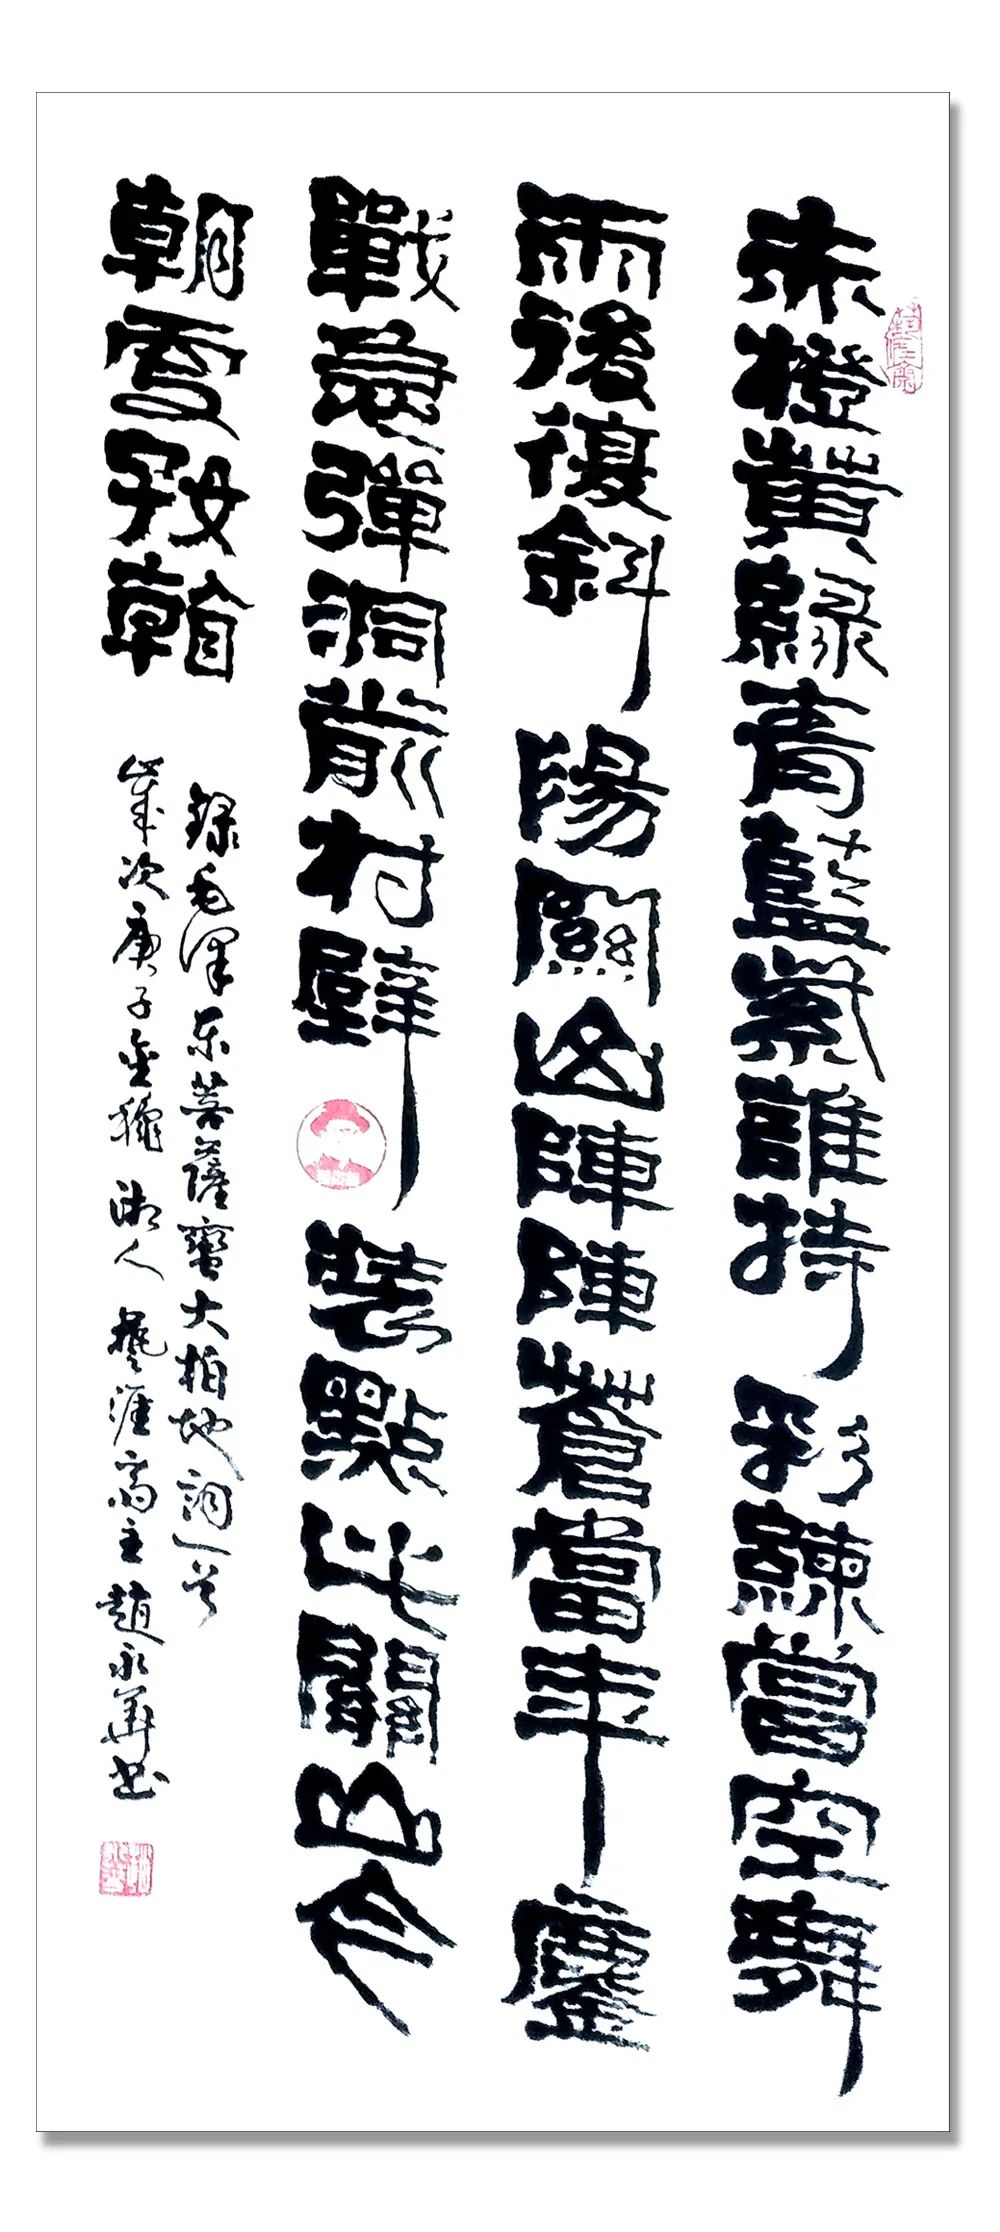 赤橙黃綠青藍紫誰持彩練當空舞
雨後復斜陽關山陣陣蒼當年鏖
戰急彈洞前村壁裝點此關山今
朝更好看
錄毛澤東菩薩蠻大柏地詞一首
歲次庚子金穐湘人藝涯齋主趙永華書